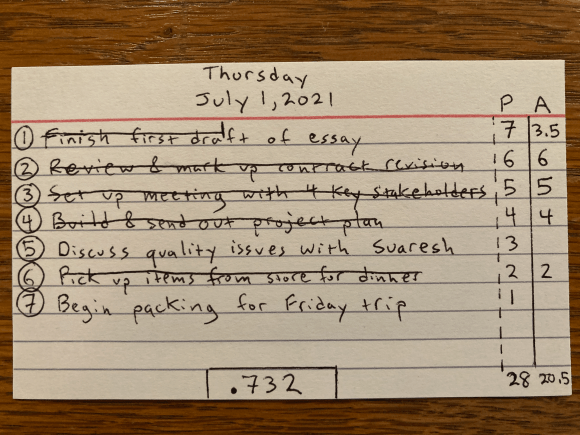 Thursday
July 1, 2021
P A
1 Finish first draft of essay 7 3.5
2 Review & mark up contract revision 6 6
3 Set up meeting with 4 key stakeholders 5 5
4 Build & send out project plan 4 4
5 Discuss quality issues with Suaresh 3
6 Pick up items from store for dinner 2 2
7 Begin packing for Friday trip 1
.732 28 20.5